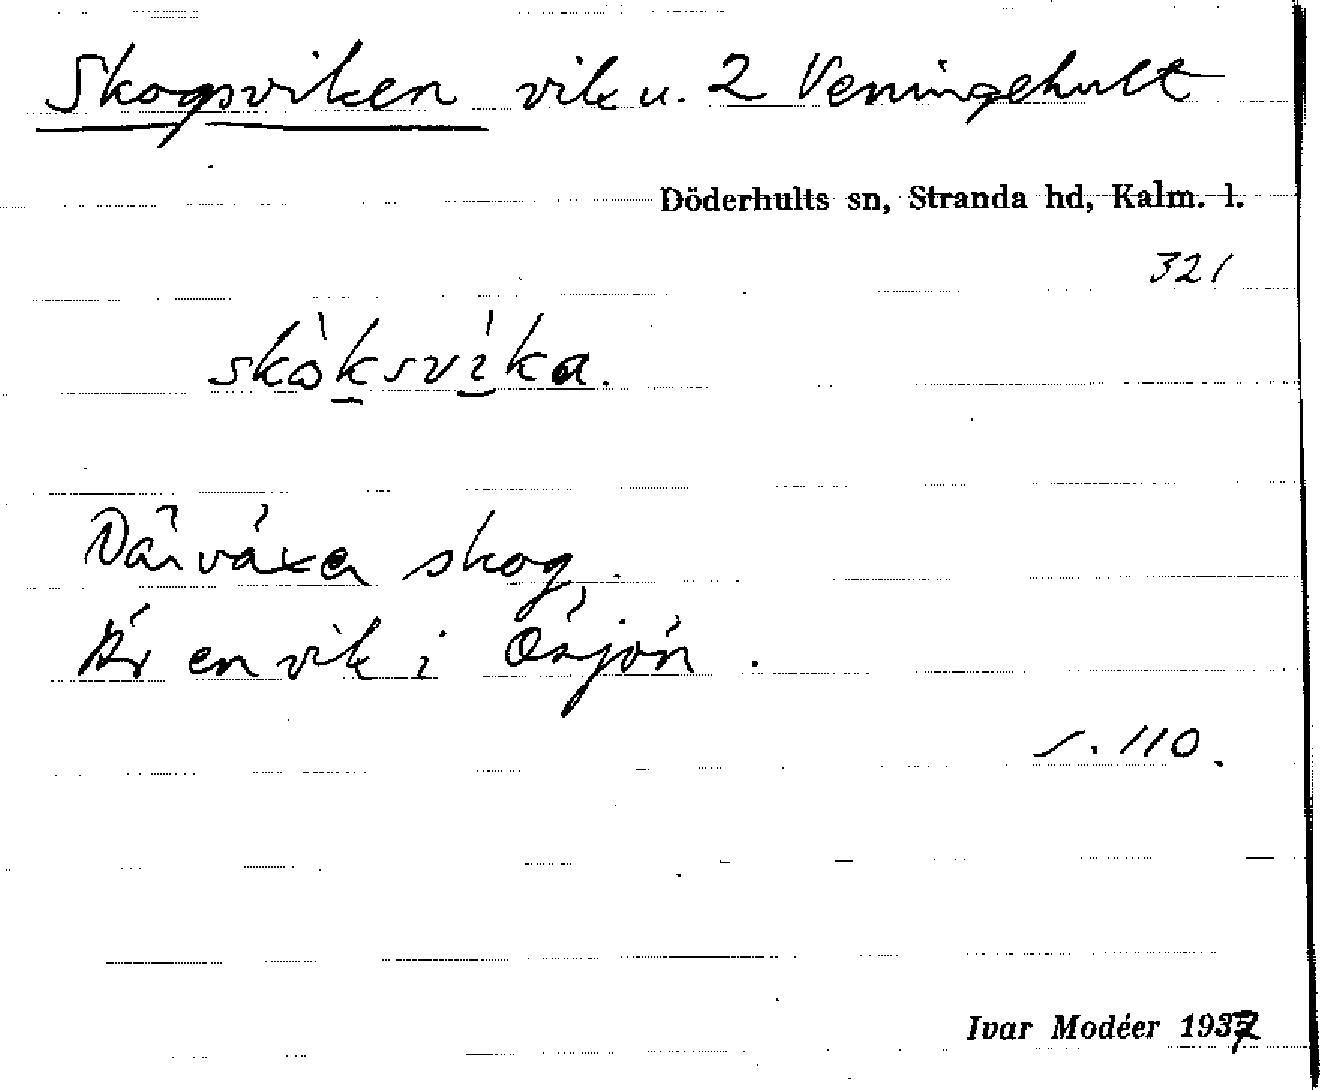 Skogsviken vik u. 2 Veningehult
Döderhults sn, Stranda hd, Kalm. l.
321
skòksvíka.
Där växer skog.
Är en vik i Ösjön.
s. 110.
Ivar Modéer 1937